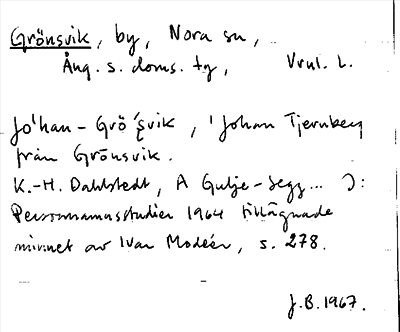 Grönsvik, by, Nora sn,
Ång. s. doms. tg, Vrnl. L.
Jo'han-Grö'svik, 'Johan Tjernberg
från Grönsvik.
K.-H. Dahlstedt, A Gulje-Segg... ):
Personnamnsstudier 1964 tillägnade
minnet av Ivar Modéer, s. 278.
J.B. 1967.